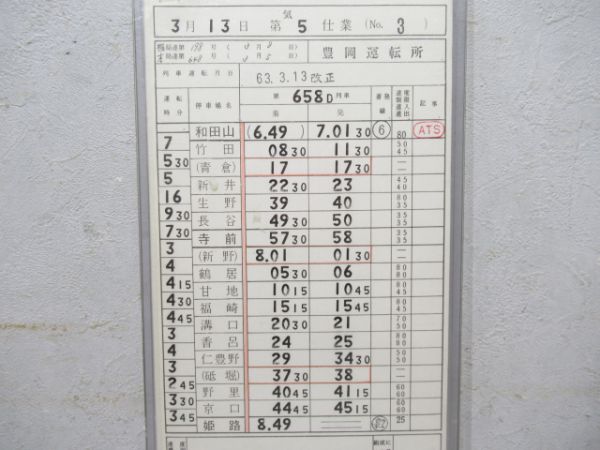 気
3月13日 第5仕業 (No. 3)
豊岡運転所
列車運転月日 63.3.13改正
運転時分 停車場名 第658D列車 着発線 記事
着 発
和田山 (6.49) 7.01 30 ⑥ 80 ATS
7
竹田 08 30 11 30 50 45
5 30
(青倉) 17 17 30 — —
5
新井 22 30 23 45 40
16
生野 39 40 80 35
9 30
長谷 49 30 50 35 35
7 30
寺前 57 30 58 35 35
3
(新野) 8.01 01 30 — —
4
鶴居 05 30 06 80 80
4 15
甘地 10 15 10 45 80 45
4 30
福崎 15 15 15 45 80 45
4 45
溝口 20 30 21 70 50
3
香呂 24 25 80 80
4
仁豊野 29 34 30 50 50
3
(砥堀) 37 30 38 — —
2 45
野里 40 45 41 15 60 60
3 30
京口 44 45 45 15 60 60
3 45
姫路 8.49 25